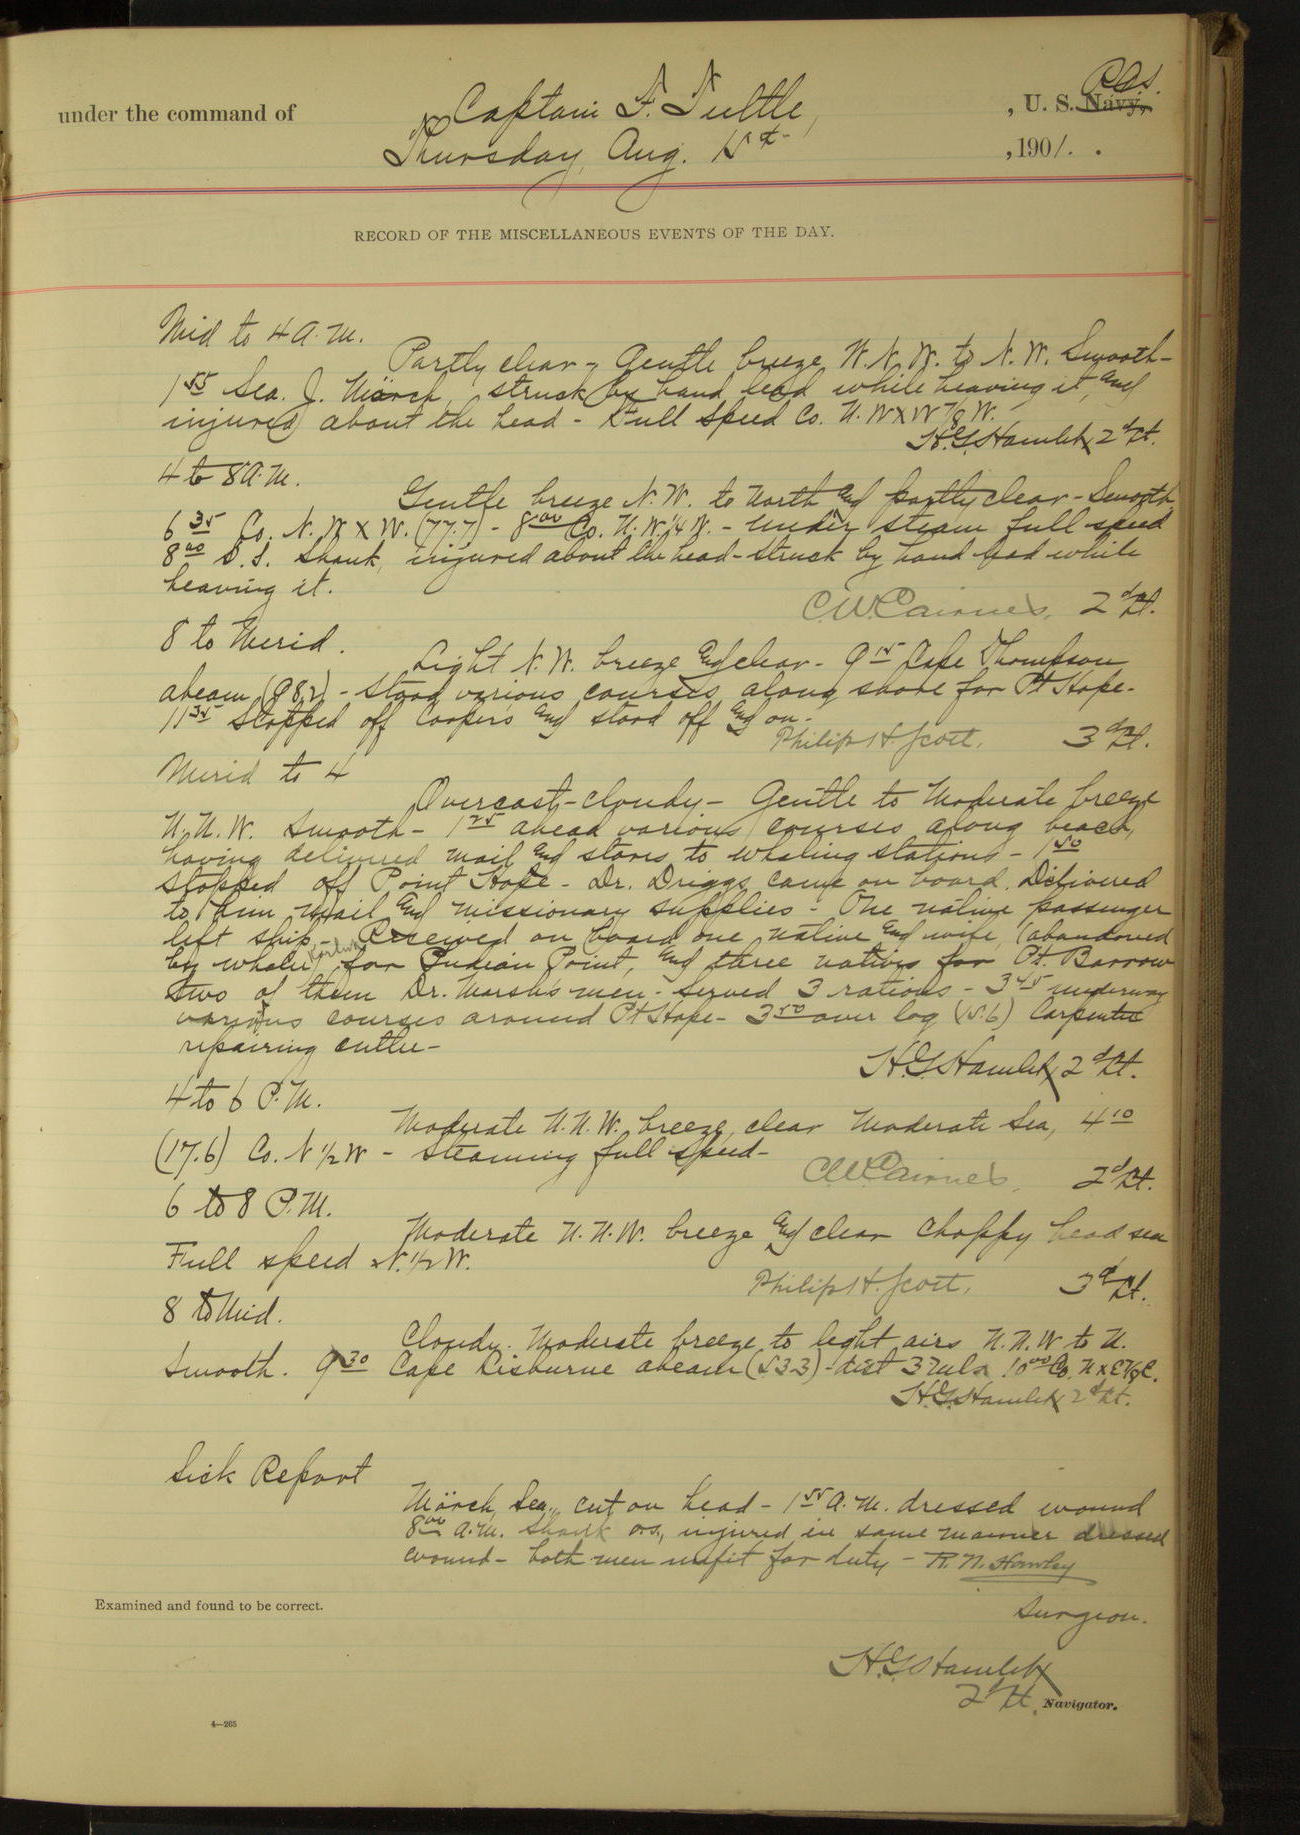 R.C.S.
under the command of Captain F. Tuttle, , U. S. Navy,
Thursday, Aug. 15th ,1901.
RECORD OF THE MISCELLANEOUS EVENTS OF THE DAY.
Mid to 4 A.M.
Partly clear - Gentle breeze N.N.W. to N.W. Smooth -
1 55 Sea. J. Mörch, struck by hand lead while heaving it, and
injured about the head - Full speed Co. N.W x W 7/8 W.
H.G. Hamlet, 2d Lt.
4 to 8 A.M.
Gentle breeze N.W. to North and partly clear - Smooth
6 35 Co. N.W x W. (77.7) - 8 00 Co. N.W. 1/4 W. - Under steam full speed
8 00 O.S. Shank, injured about the head - struck by hand lead while
heaving it.
C.W. Cairnes, 2d Lt.
8 to Merid.
Light N.W. breeze and clear - 9 15 Cape Thompson
abeam, (98.2) - Stood various courses along shore for Pt Hope -
11 35 Stopped off Coopers and stood off and on -
Philip H. Scott, 3d Lt.
Merid to 4
Overcast - cloudy - Gentle to Moderate breeze
N.N.W. Smooth - 1 25 ahead various courses along beach,
having delivered mail and stores to whaling stations - 1 50
Stopped off Point Hope - Dr. Driggs came on board. Delivered
to him mail and missionary supplies - One native passenger
left ship - Received on board one native and wife, (abandoned
by whaler) for Indian Point, and three natives for Pt. Barrow
two of them Dr. Marsh's men - Served 3 rations - 3 45 underway
various courses around Pt Hope - 3 50 over log (15.6) Carpenter
repairing cutter -
H.G. Hamlet, 2d Lt.
4 to 6 P.M.
Moderate N.N.W. breeze, clear Moderate Sea, 4 10
(17.6) Co. N 1/2 W - Steaming full speed -
C.W. Cairnes, 2d Lt.
6 to 8 P.M.
Moderate N.N.W. breeze and clear choppy head sea
Full speed N. 1/2 W.
Philip H. Scott, 3d Lt.
8 to Mid.
Cloudy. Moderate breeze to light airs N.N.W to N.
Smooth. 9 30 Cape Lisburne abeam (53.3) - dist 3 mls. 10 00 Co. N x E 1/8 E.
H.G. Hamlet, 2d Lt.
Sick Report
Mörch, Sea., cut on head - 1 55 A.M. dressed wound
8 00 A.M. Shank O.S., injured in same manner dressed
wound - both men unfit for duty - R. N. Hawley
Surgeon.
Examined and found to be correct.
H.G. Hamlet
2d Lt. Navigator.
4—265